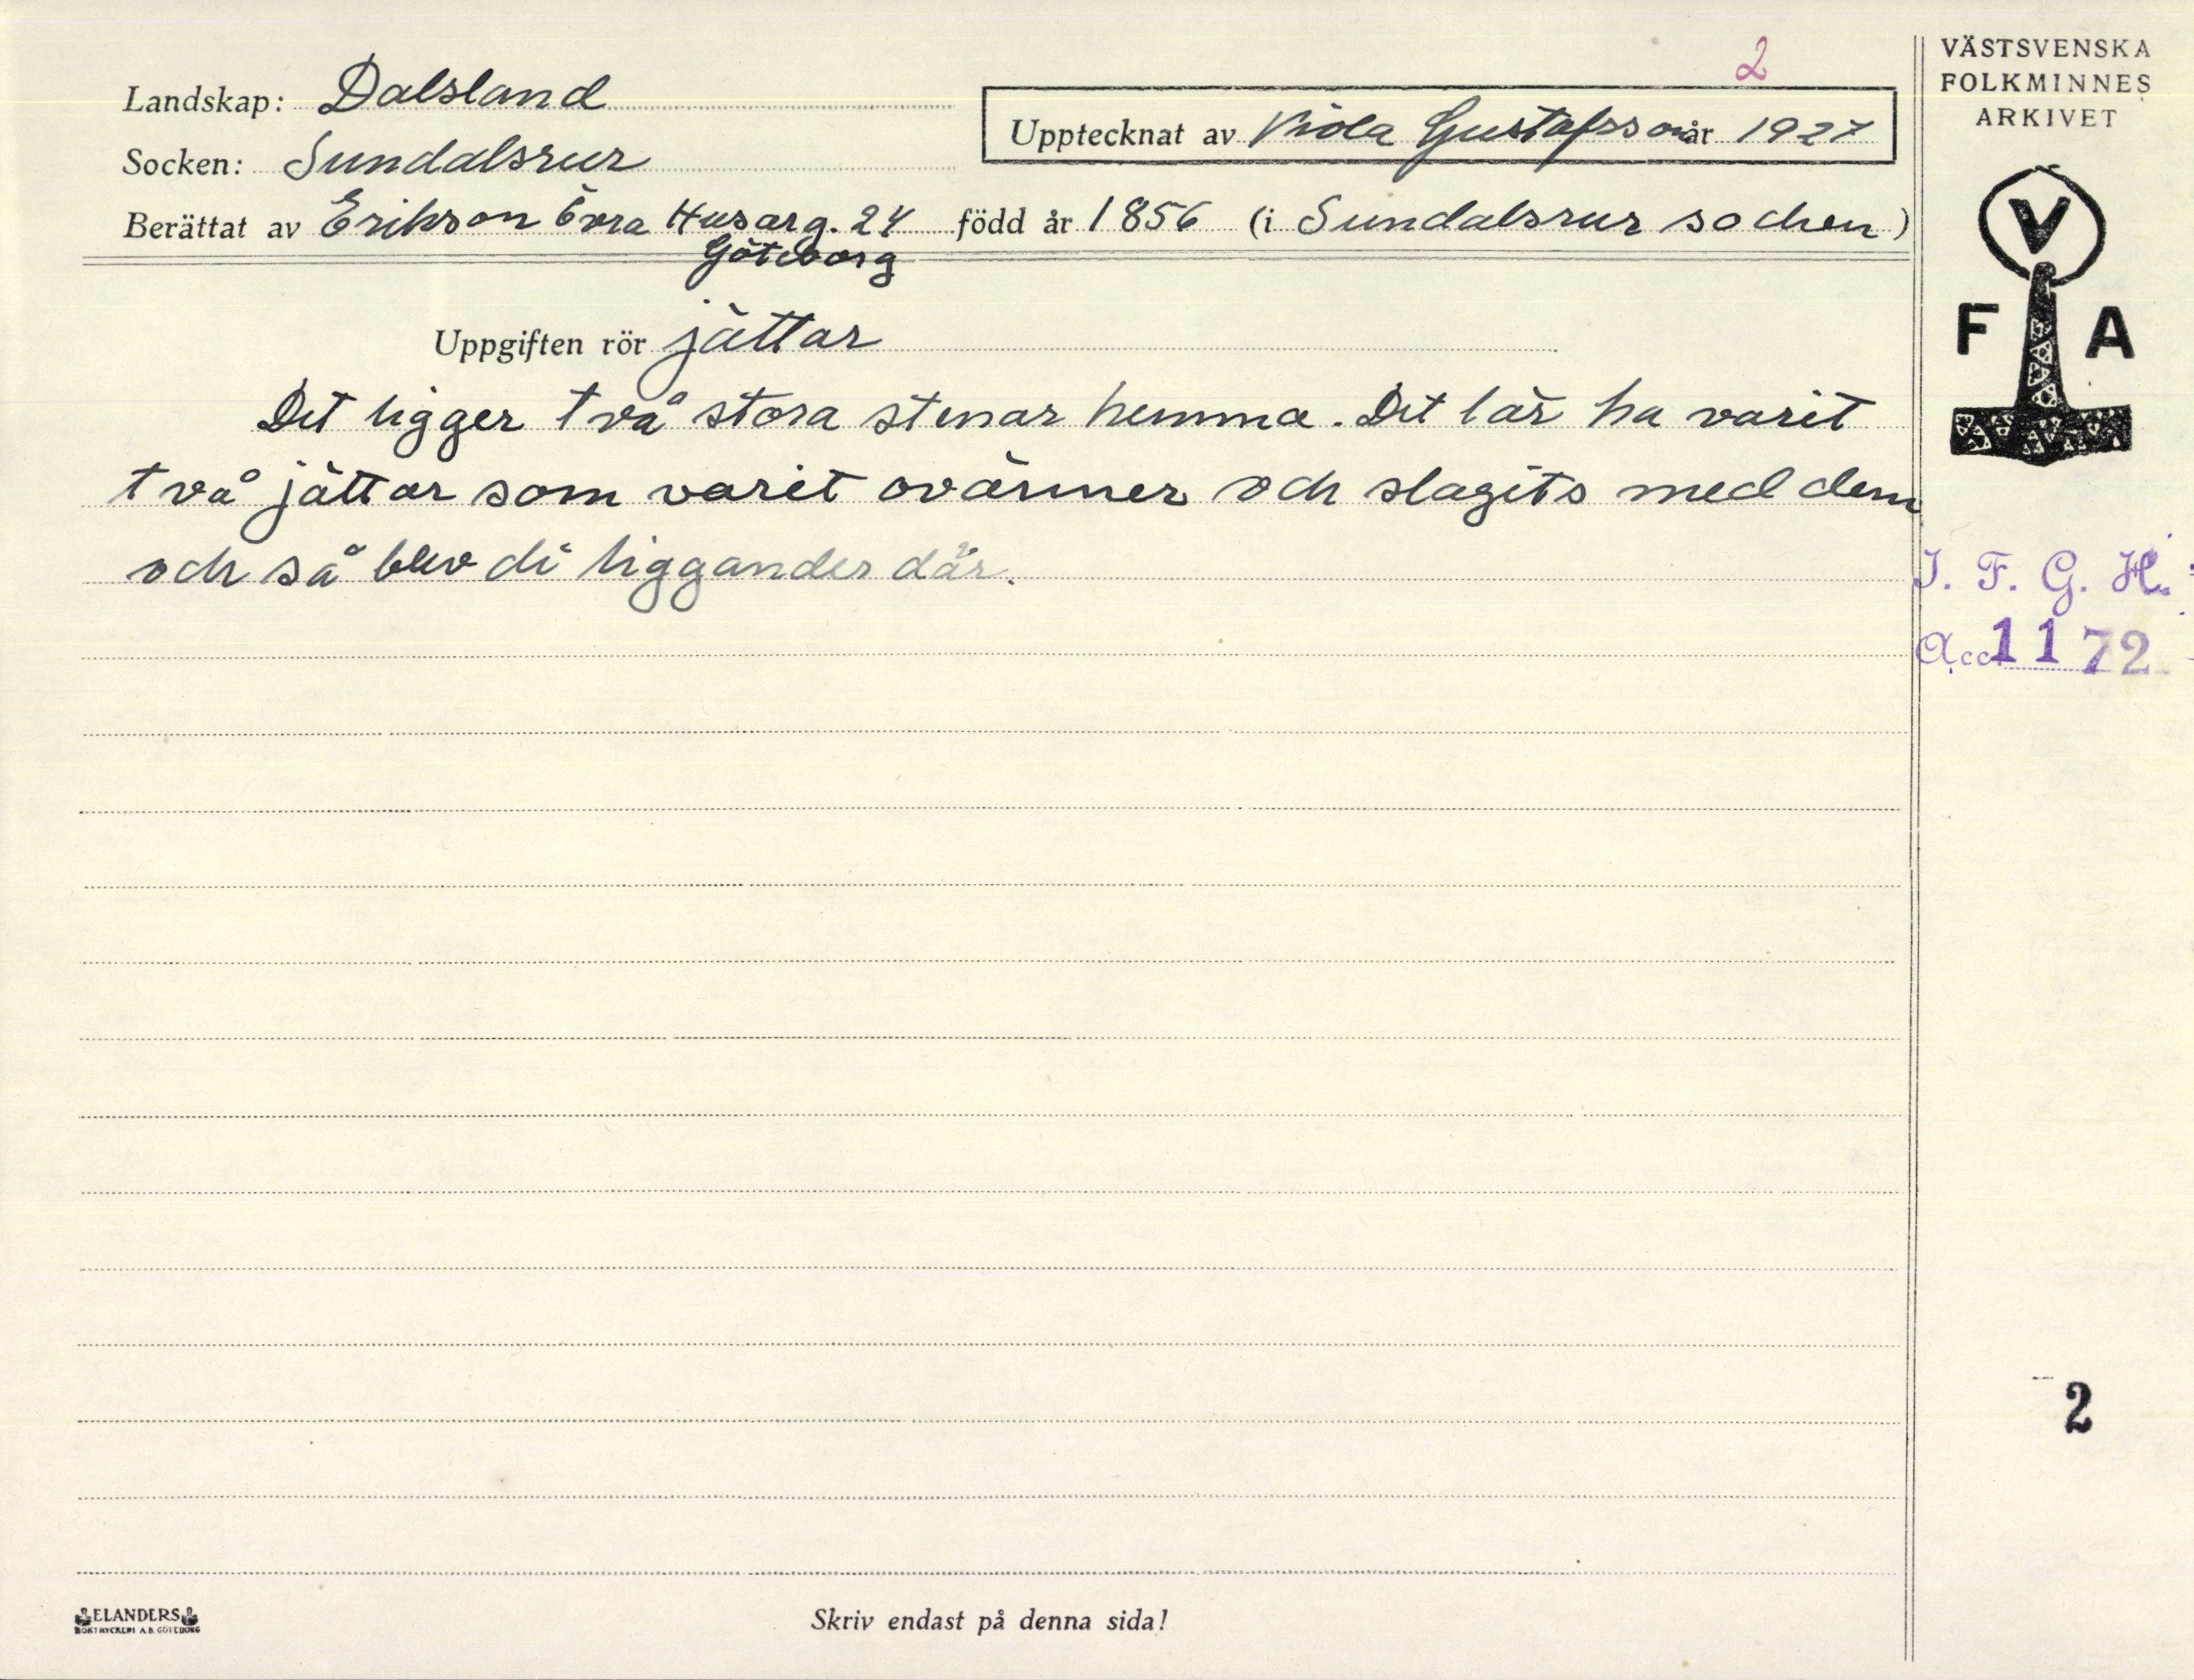 2
Landskap: Dalsland
Upptecknat av Viola Gustafsson år 1927
Socken: Sundalsrur
Berättat av Erikson Övra Husarg. 24 född år 1856 (i Sundalsrur socken)
Göteborg
Uppgiften rör jättar
Det ligger två stora stenar hemma. Det lär ha varit
två jättar som varit ovänner och slagits med dem
och så blev di liggandes där.
VÄSTSVENSKA
FOLKMINNES
ARKIVET
V
F A
I. F. G. H.
Acc. 1172
2
ELANDERS
BOKTRYCKERI A.B. GÖTEBORG
Skriv endast på denna sida!